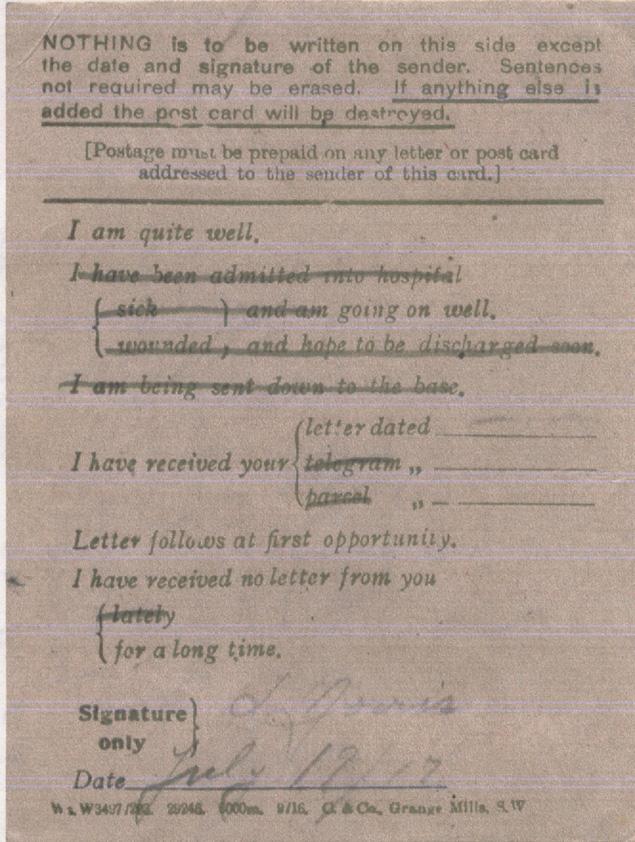 NOTHING is to be written on this side except
the date and signature of the sender. Sentences
not required may be erased. If anything else is
added the post card will be destroyed.
[Postage must be prepaid on any letter or post card
addressed to the sender of this card.]
I am quite well.
I have been admitted into hospital
sick } and am going on well.
wounded } and hope to be discharged soon.
I am being sent down to the base.
letter dated
I have received your { telegram „
parcel „
Letter follows at first opportunity.
I have received no letter from you
lately
for a long time.
Signature
only
Date July 19/17
9/16. G. & Co., Grange Mills, S.W